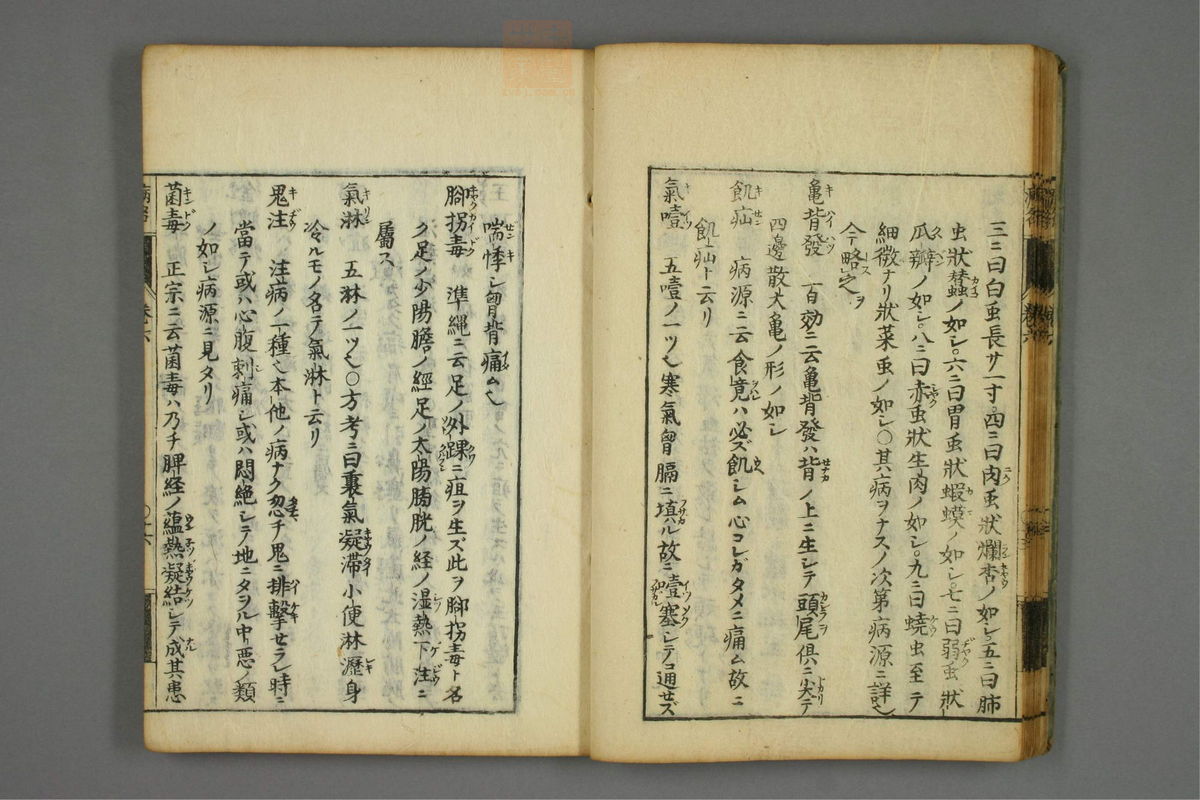 三ニ曰白䖝長サ一寸。四ニ曰肉䖝狀爛杏ノ如シ。五ニ曰肺
虫狀蠶ノ如シ。六ニ曰胃虫狀蝦蟆ノ如シ。七ニ曰弱䖝狀
瓜瓣ノ如シ。八ニ曰赤虫狀生肉ノ如シ。九ニ曰蟯虫至テ
細微ナリ狀菜虫ノ如シ○其病ヲナスノ次第病源ニ詳也
今略之ヲ
亀背發 百効ニ云亀背發ハ背ノ上ニ生シテ頭尾俱ニ尖テ
四邊散大亀ノ形ノ如シ
飢疝 病源ニ云食竟ハ必ズ飢シム心コレガタメニ痛ム故ニ
飢疝ト云リ
氣噎 五噎ノ一ツ也寒氣胷膈ニ填ハル故ニ噎塞シテ通せズ
喘悸シ胷背痛ム也
腳拐毒 準縄ニ云足ノ外踝ニ疽ヲ生ズ此ヲ腳拐毒ト名
ク足ノ少陽膽ノ經足ノ太陽膀胱ノ経ノ湿熱下注ニ
屬ス
氣淋 五淋ノ一ツ也○方考ニ曰裏氣凝滞小便淋瀝身
冷ルモノ名テ氣淋ト云リ
鬼注 注病ノ一種也本他ノ病ナク忽チ鬼ニ排擊せラレ時ニ
當テ或ハ心腹刺痛シ或ハ悶絶シテ地ニタヲル中リ悪ノ類
ノ如シ病源ニ見タリ
菌毒 正宗ニ云菌毒ハ乃チ脾経ノ蘊熱凝結シテ成其患